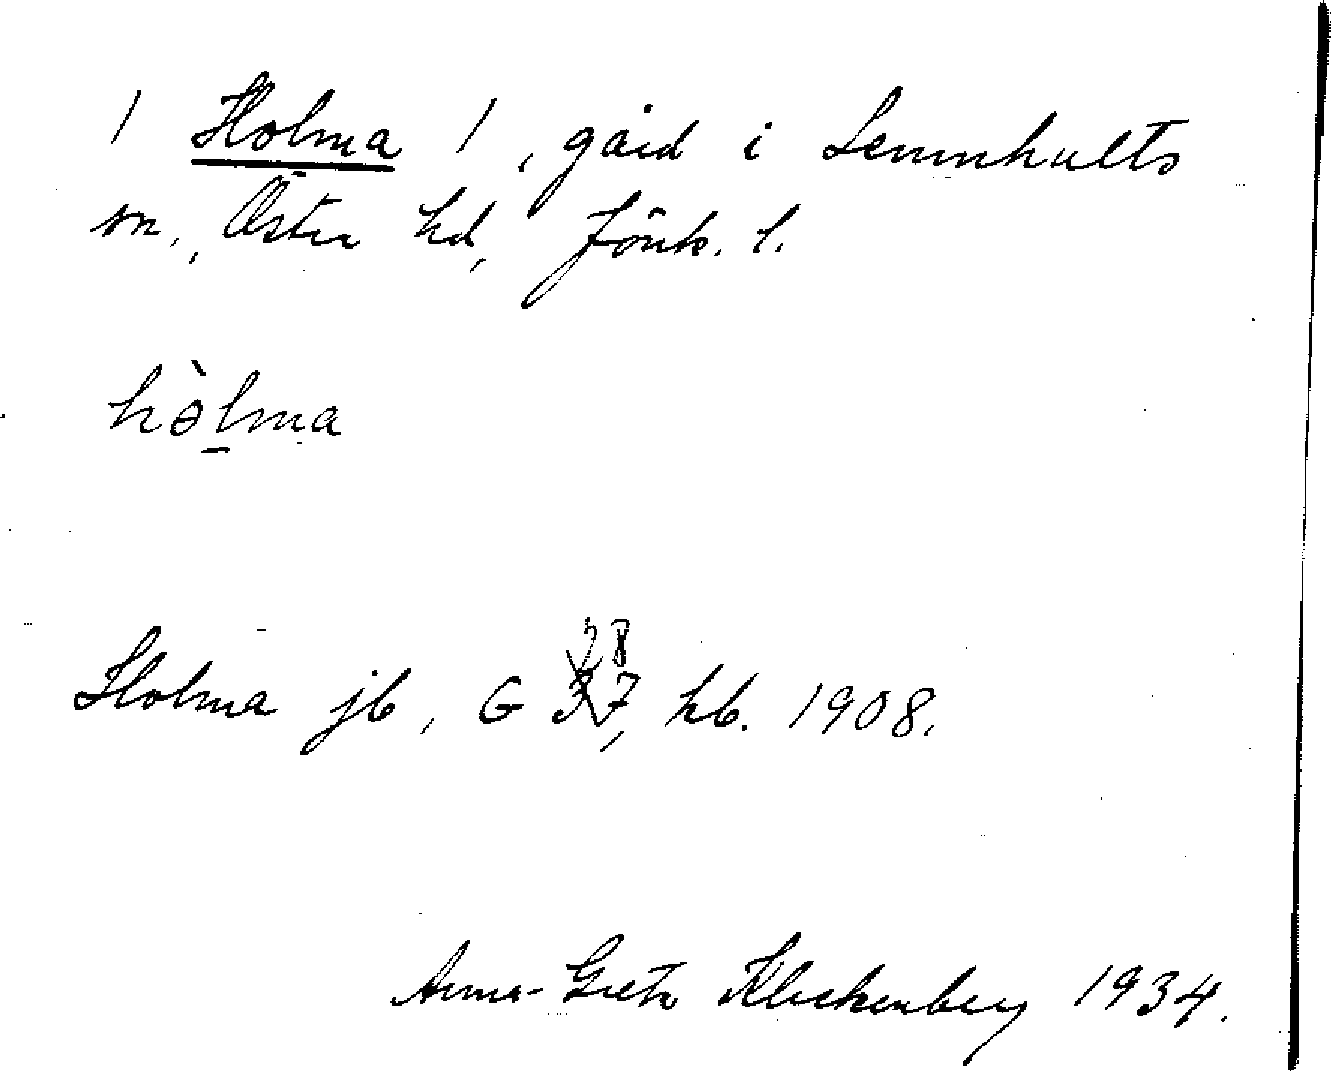 / Holma /, gård i Lemnhults
sn., Östra hd, Jönk. l.
hòlma
28
Holma jb, G 37, hb. 1908.
Anna-Greta Klickenberg 1934.